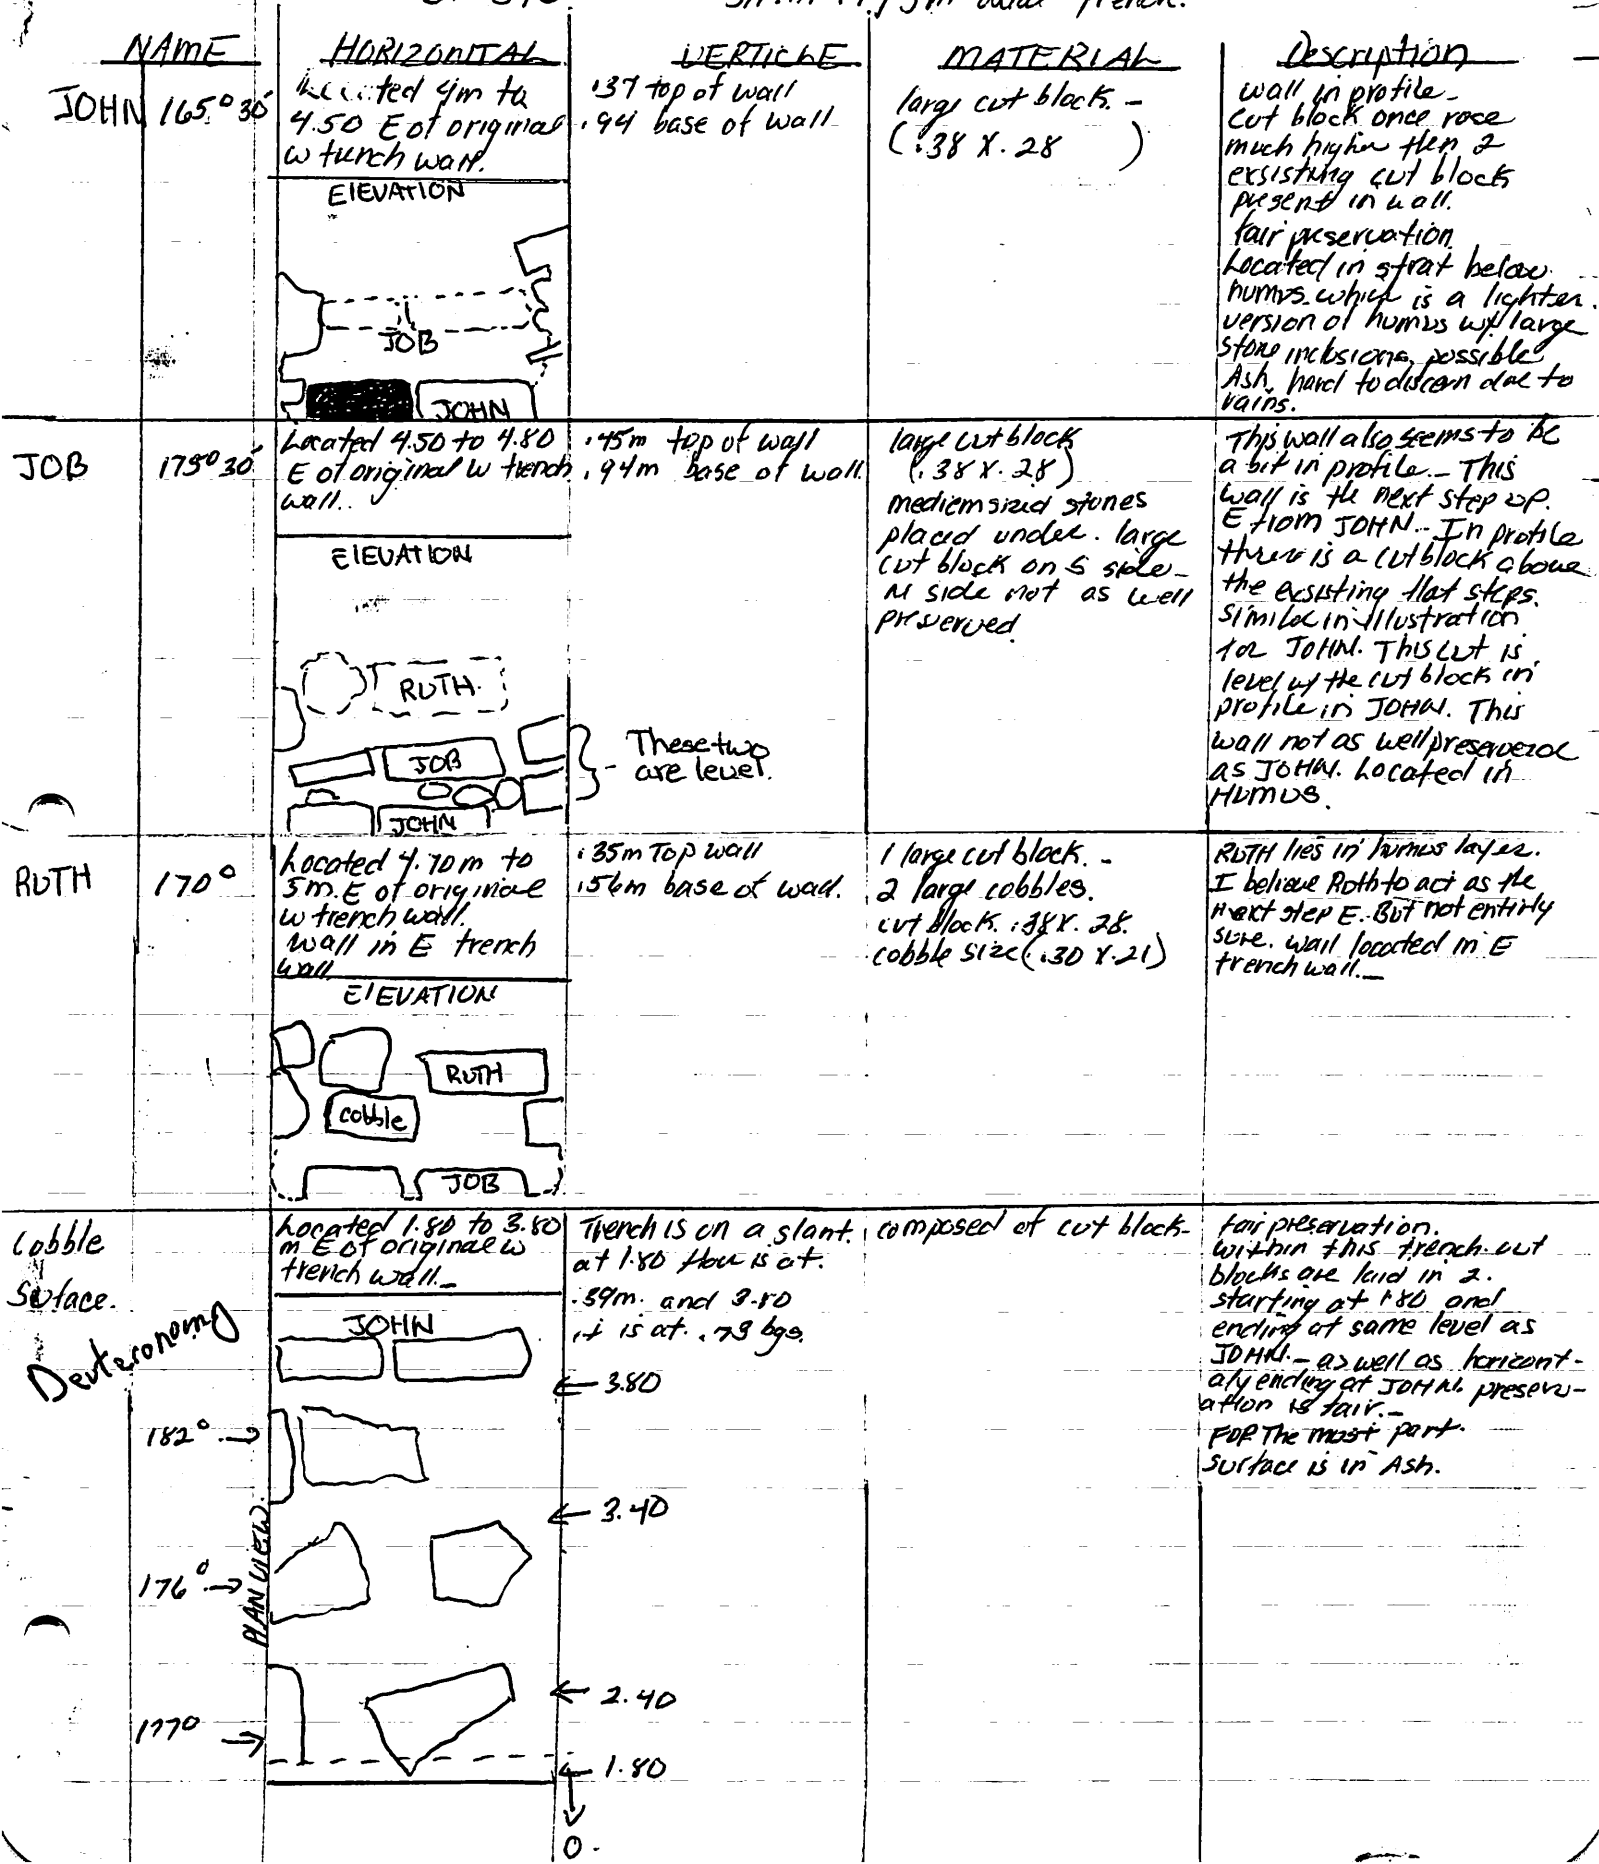 wide trench.
NAME
HORIZONITAL
VERTICLE
MATERIAL
Description
JOHN 165° 30'
Located 4m to
4.50 E of original
w trench wall.
ELEVATION
JOB
JOHN
.37 top of wall
.94 base of wall
large cut block. -
(.38 X .28 )
wall in profile -
cut block once rose
much higher then 2
exsisting cut block
present in wall.
fair preservation
Located in strat below
humus which is a lighter
version of humus w/ large
stone inclusions, possible
Ash, hard to discern due to
rains.
JOB 175° 30'
Located 4.50 to 4.80
E of original w trench
wall..
ELEVATION
RUTH
JOB
JOHN
These two
are level.
.45m top of wall
.94m base of wall
large cut block
(.38 X .28)
mediem sized stones
placed under large
cut block on S side -
N side not as well
preserved.
This wall also seems to be
a bit in profile - This
wall is the next step up.
E from JOHN.- In profile
there is a cut block above
the exsisting flat steps.
similar in illustration
for JOHN. This cut is
level w/ the cut block in
profile in JOHN. This
wall not as well preserved
as JOHN. Located in
HUMUS.
RUTH 170°
Located 4.70m to
5m. E of original
w trench wall.
wall in E trench
wall
ELEVATION
RUTH
cobble
JOB
.35m Top wall
.56m base of wall.
1 large cut block. -
2 large cobbles.
cut block. .38 X .28.
cobble size (.30 X .21)
RUTH lies in humus layer.
I believe Ruth to act as the
next step E. But not entirly
sure. wall located in E
trench wall. -
Cobble
Surface.
Deuteronomy
Located 1.80 to 3.80
m E of original w
trench wall. -
JOHN
182° →
176° →
177° →
PLAN VIEW
← 3.80
← 3.40
← 2.40
← 1.80
0.
Trench is on a slant.
at 1.80 floor is at.
.39m. and 3.80
it is at .79 bgs.
composed of cut block-
fair preservation.
within this trench cut
blocks are laid in 2.
starting at 1.80 and
ending at same level as
JOHN. - as well as horizont-
aly ending at JOHN. preserv-
ation is fair. -
FOR The most part.
surface is in Ash.